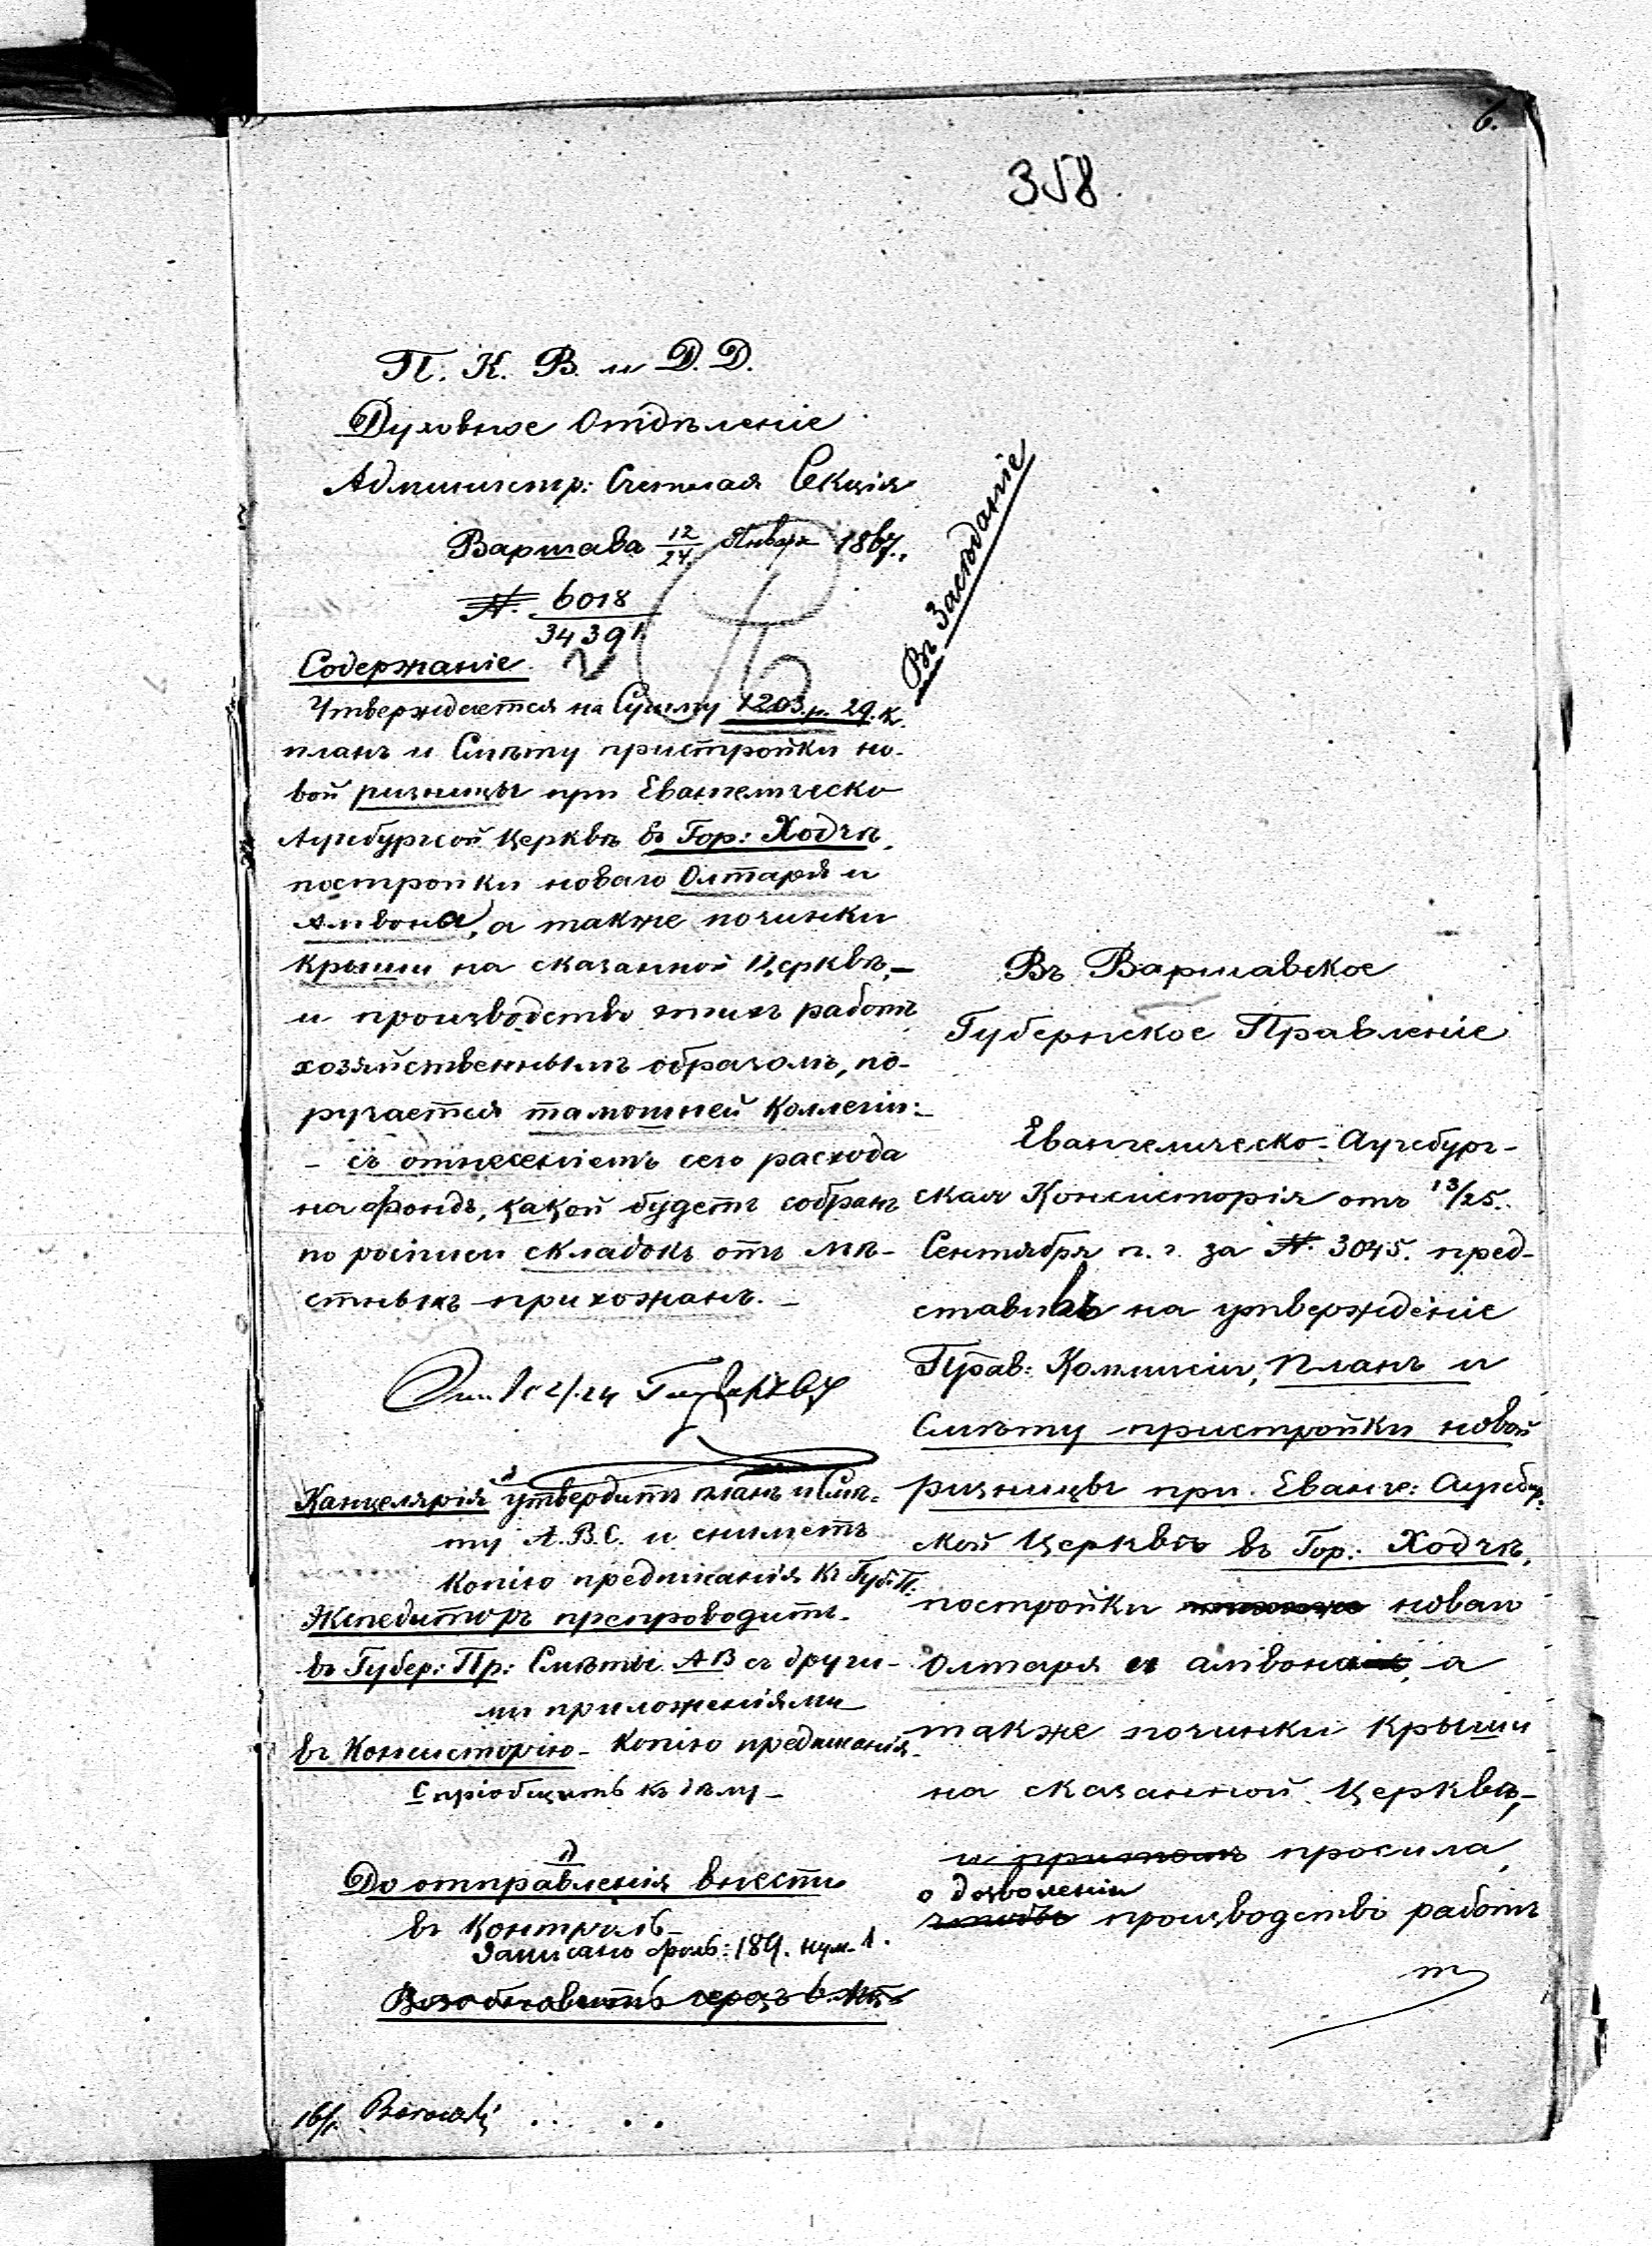 6.
358
П. К. В. и Д. Д.
Духовное Отдѣленіе
Администр: Счетная Секція
Варшава 12/24 Января 1867.
N. 6018/34391
Въ Засѣданіе
Содержаніе.
Утверждается на Сумму 1203.р. 29.к.
планъ и Смѣту пристройки но-
вой ризницы при Евангелическо
Аугсбургской Церквѣ въ Гор: Ходчѣ,
постройки новаго Олтаря и
Амвона, а также починки
крыши на сказанной Церквѣ,-
и производство этихъ работъ
хозяйственнымъ образомъ, по-
ручается тамошней Коллегіи:-
- съ отнесеніемъ сего расхода
на фондъ, какой будетъ собранъ
по росписи складокъ отъ мѣ-
стныхъ прихожанъ. -
Канцелярія утвердитъ планъ и Смѣ-
ту А.В.С. и сниметъ
копію предписанія къ Губ. П:
Экспедиторъ препроводитъ
въ Губер: Пр: Смѣты АВ съ други-
ми приложеніями
въ Консисторію - Копію предписанія
С пріобщить къ дѣлу -
До отправленія внести
въ Контроль
Записано фоль: 189. нум. 1.
Возобновить черезъ 6. мѣс
16/1. Borowski
Въ Варшавское
Губернское Правленіе
Евангелическо-Аугсбург-
ская Консисторія отъ 13/25.
Сентября п. г. за N. 3045. пред-
ставивъ на утвержденіе
Прав: Коммисіи, планъ и
Смѣту пристройки новой
ризницы при Еванг: Аугсбур-
ской Церквѣ въ Гор: Ходчѣ,
постройки новаго
Олтаря и амвона, а
также починки крыши
на сказанной Церквѣ,-
и притомъ просила
о дозволеніи
чтобы производство работъ